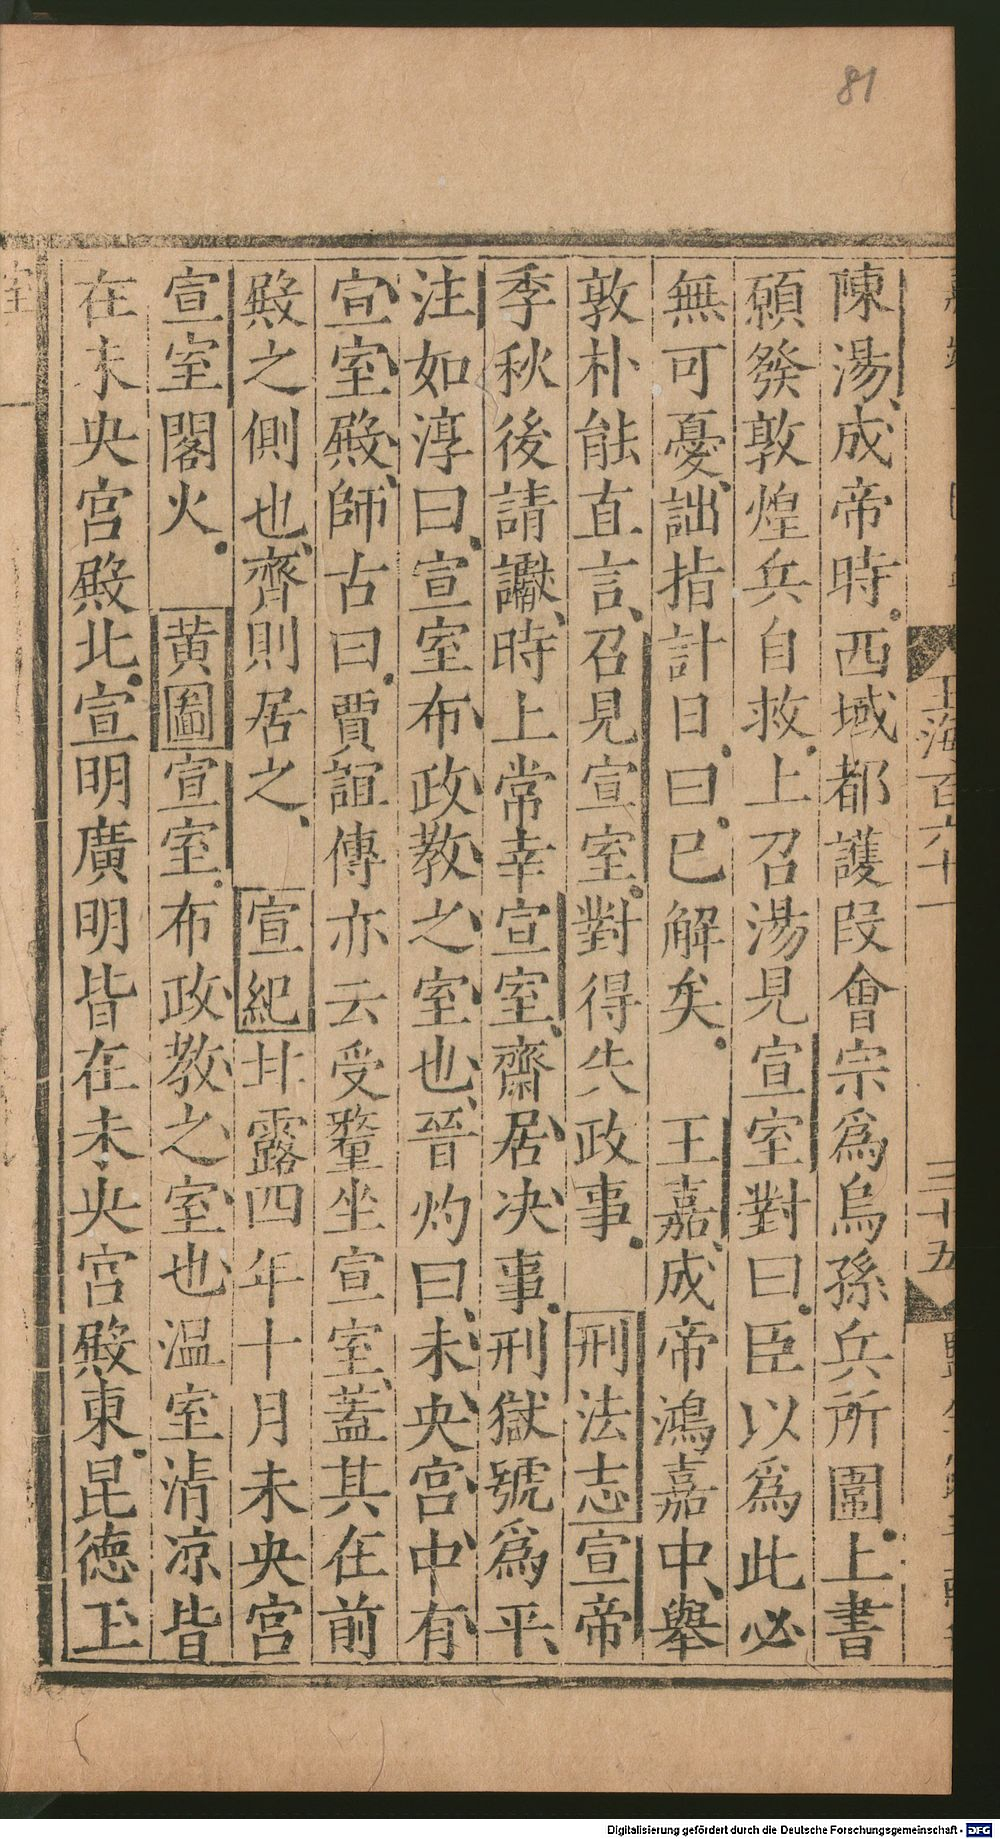 81
玉海百六十一
三十五
陳湯成帝時西域都護段會宗爲烏孫兵所圍上書
願發敦煌兵自救上召湯見宣室對曰臣以爲此必
無可憂詘指計日曰已解矣 王嘉成帝鴻嘉中舉
敦朴能直言召見宣室對得失政事 刑法志宣帝
季秋後請讞時上常幸宣室齋居決事刑獄號爲平
注如淳曰宣室布政教之室也晉灼曰未央宮中有
宣室殿師古曰賈誼傳亦云受釐坐宣室蓋其在前
殿之側也齊則居之 宣紀甘露四年十月未央宮
宣室閣火 黄圖宣室布政教之室也温室清凉皆
在未央宮殿北宣明廣明皆在未央宮殿東昆德玉
室
Digitalisierung gefördert durch die Deutsche Forschungsgemeinschaft - DFG